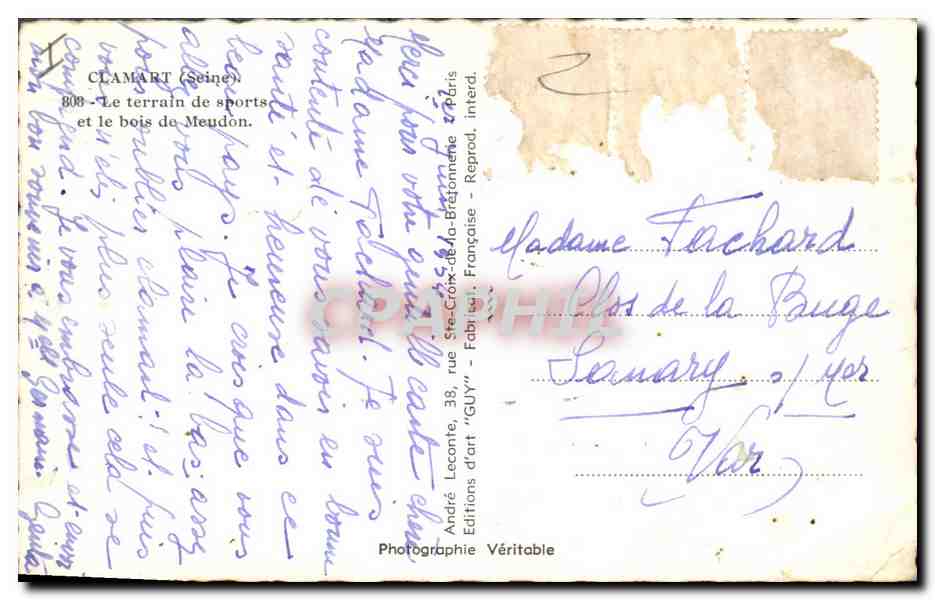 CLAMART (Seine).
808 - Le terrain de sports
et le bois de Meudon.
Merci pour votre gentille carte chère
Madame Fachard. Je suis
contente de vous savoir en bonne
santé et heureuse dans ce
beau pays. Je crois que vous
allez vous plaire la bas, assez
pour oublier Clamart ! et puis
vous n'êtes plus seule cela se
comprend. Je vous embrasse et
mon bon souvenir à Germaine
André Leconte, 38, rue Ste-Croix-de-la-Bretonnerie Paris
Editions d'art "GUY" - Fabricat. Française - Reprod. interd.
Photographie Véritable
Madame Fachard
Clos de la Buge
Sanary s/ Mer
Var
CPAPHIL